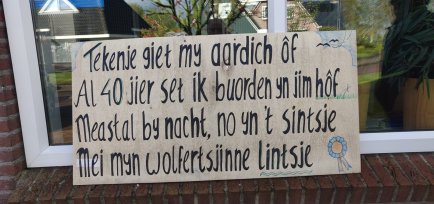 Tekenje giet my aardich ôf
Al 40 jier set ik buorden yn jim hôf
Meastal by nacht, no yn 't sintsje
Mei myn wolfertsjinne lintsje